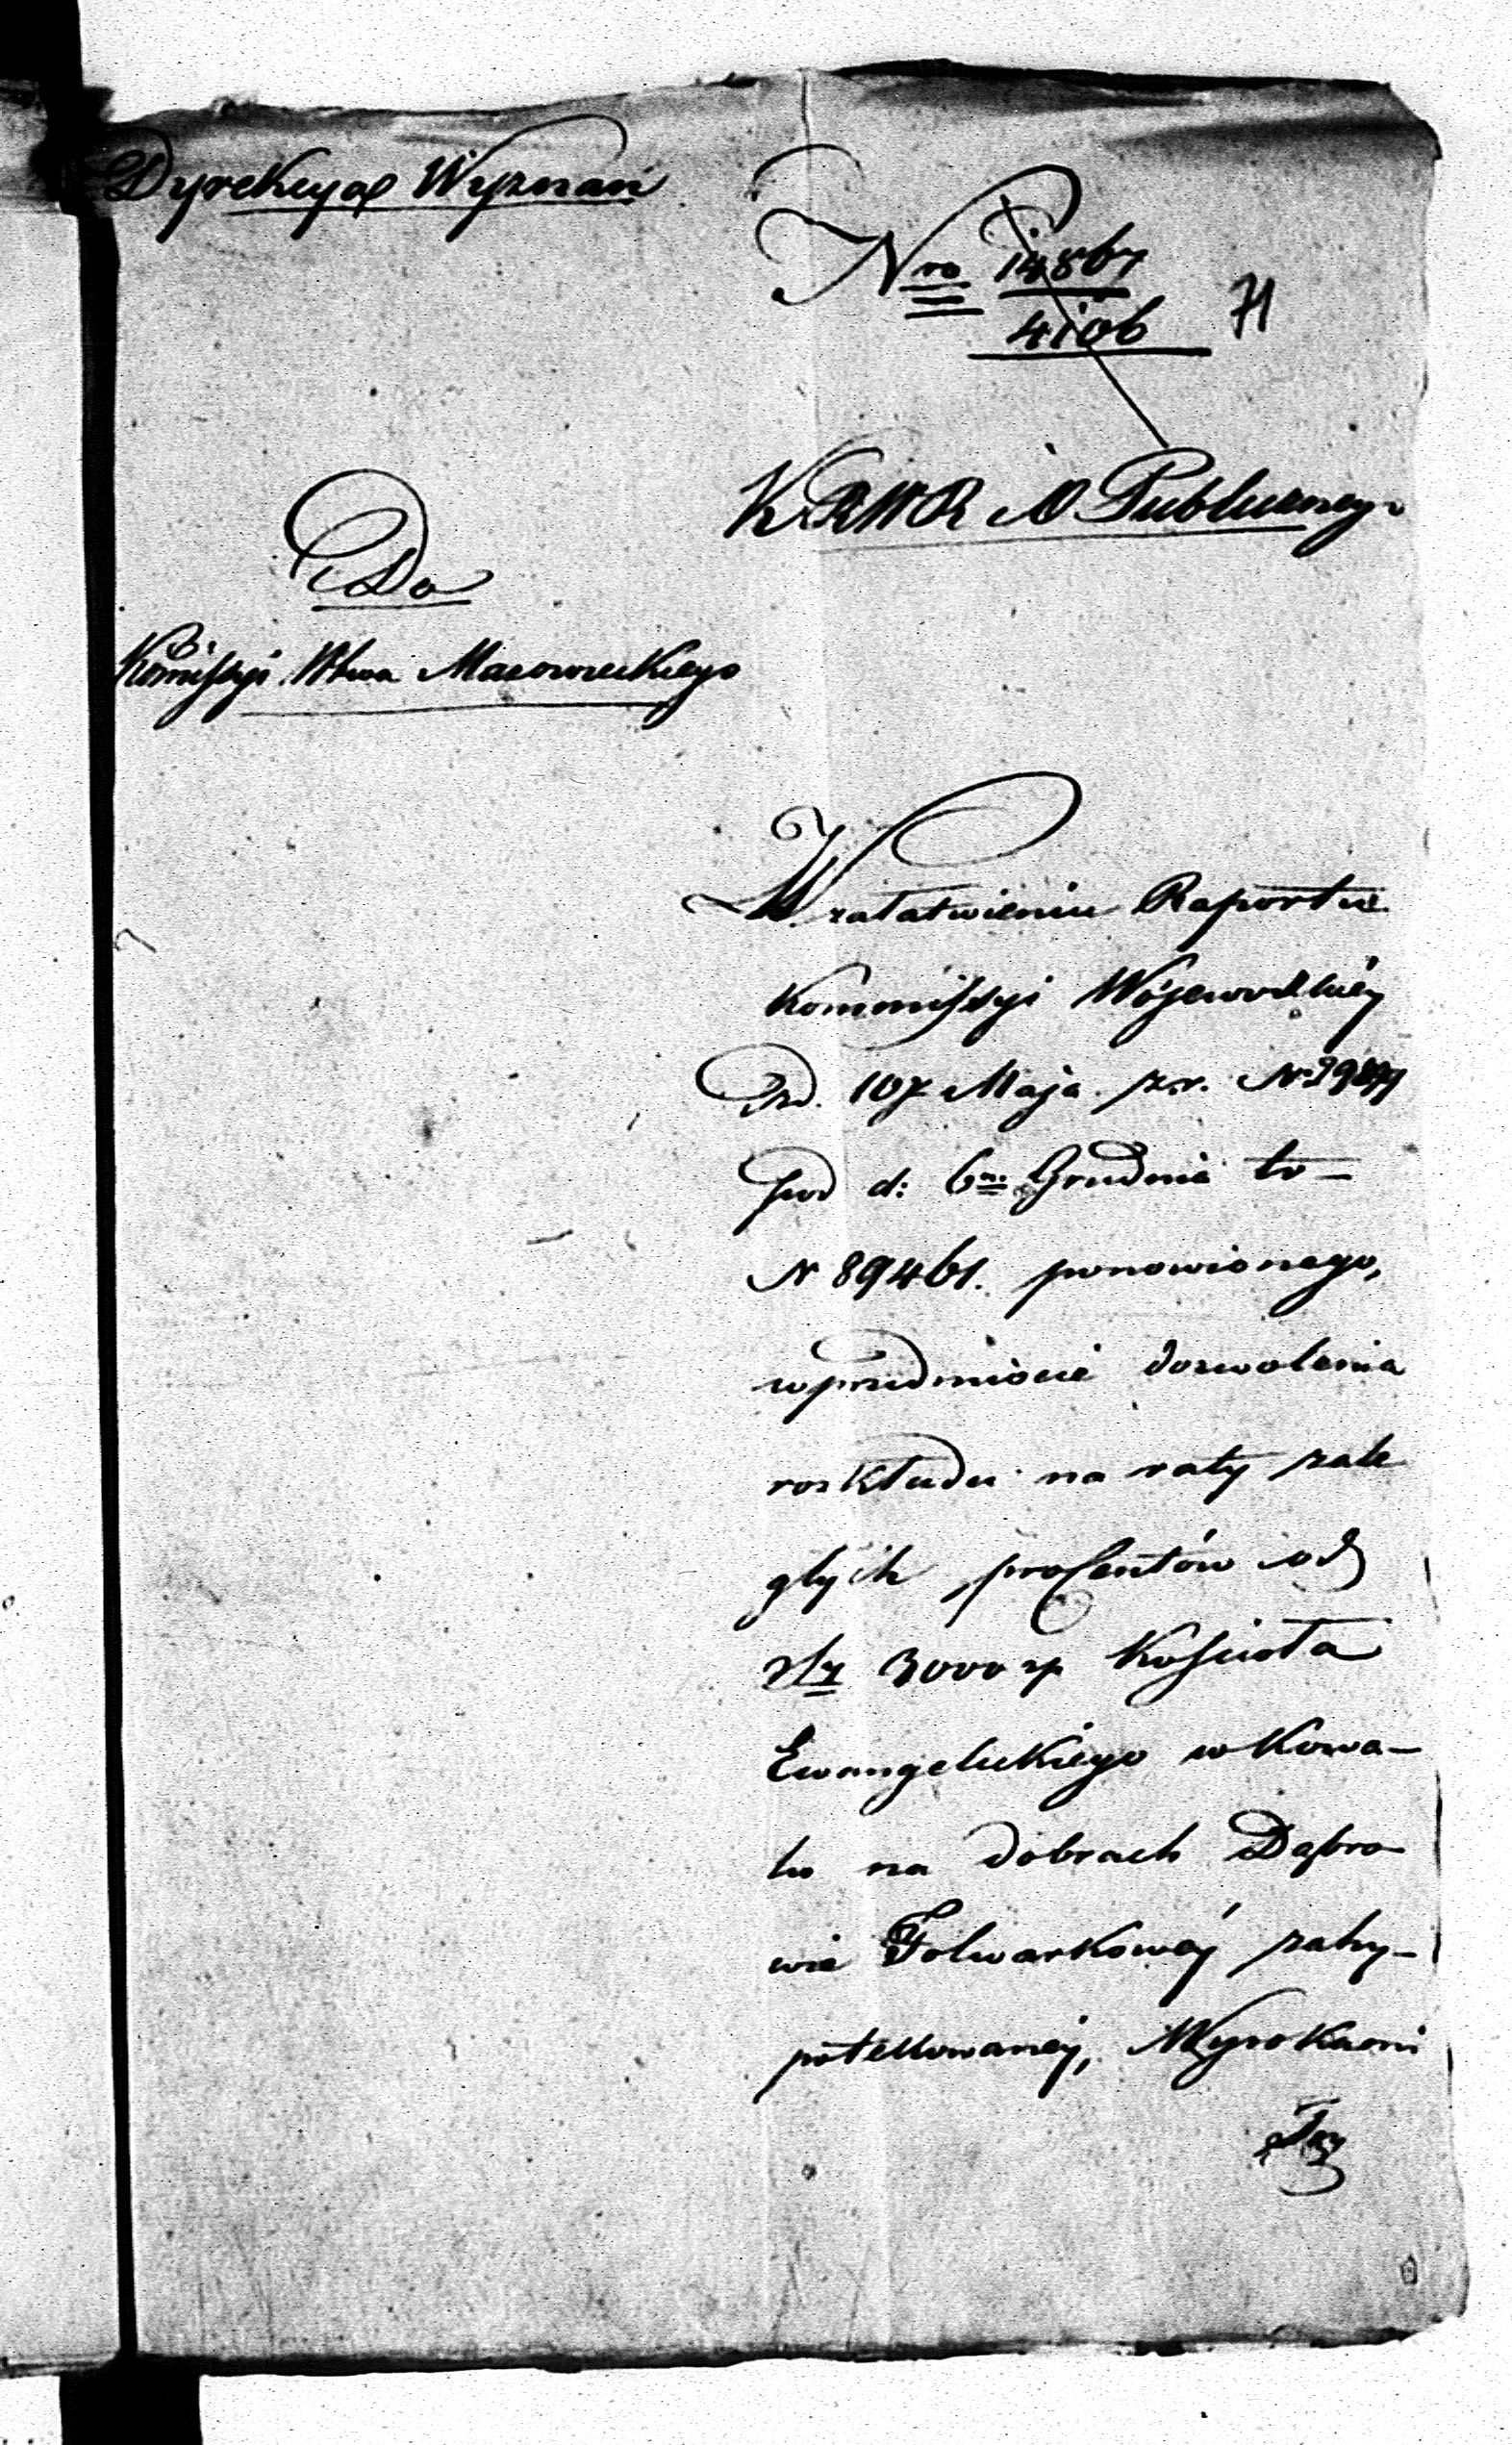 Dyrekcya Wyznań
Nro 14867
4106
71
K.R.W.R i O Publicznego
Do
Kommissyi Wtwa Mazowieckiego
W załatwieniu Raportu
Kommissyi Wojewodzkiéy
Maja z.r. N
pod d: 6m Grudnia to-
N 89461. ponowionego,
w przedmiocie dozwolenia
rozkładu na raty zale
głych procentów od
3000 zp Kościoła
Ewangelickiego w Kowa-
lu na dobrach Dąbro-
wie Folwarkowéy zahy-
potekowanéy, Wyrokami